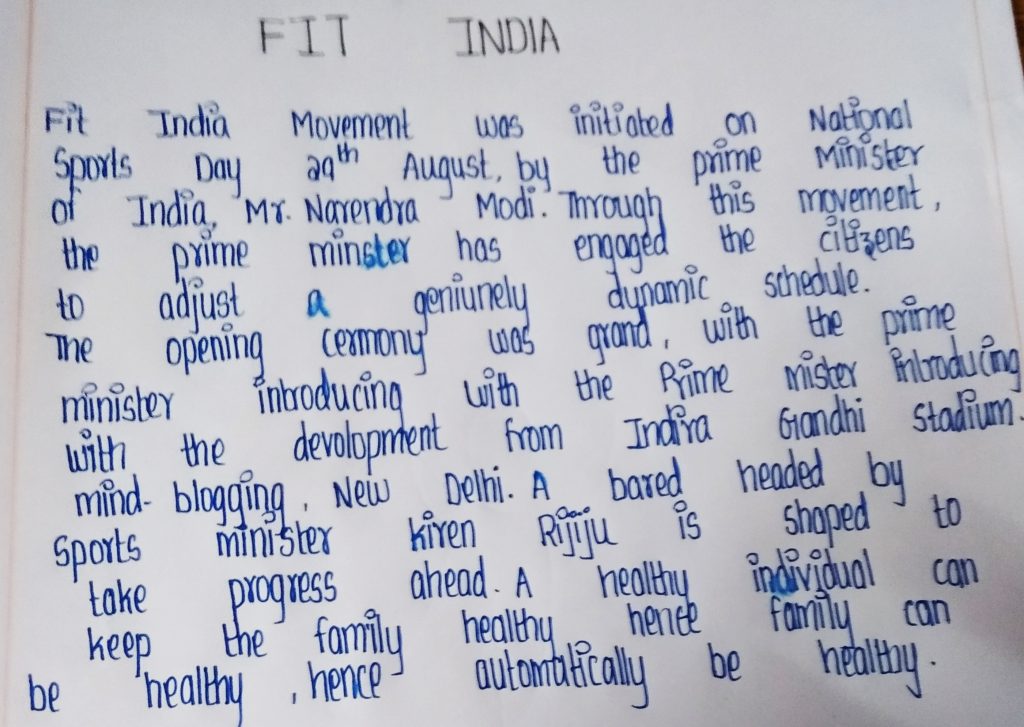 FIT INDIA
Fit India Movement was initiated on National
Sports Day 29th August, by the prime Minister
of India, Mr. Narendra Modi. Through this movement,
the prime minster has engaged the citizens
to adjust a geniunely dynamic schedule.
The opening cermony was grand, with the prime
minister introducing with the Prime mister introducing
with the devolopment from Indira Gandhi Stadium.
mind-blogging, New Delhi. A bared headed by
Sports minister kiren Rijiju is shaped to
take progress ahead. A healthy individual can
keep the family healthy hence family can
be healthy, hence automatically be healthy.